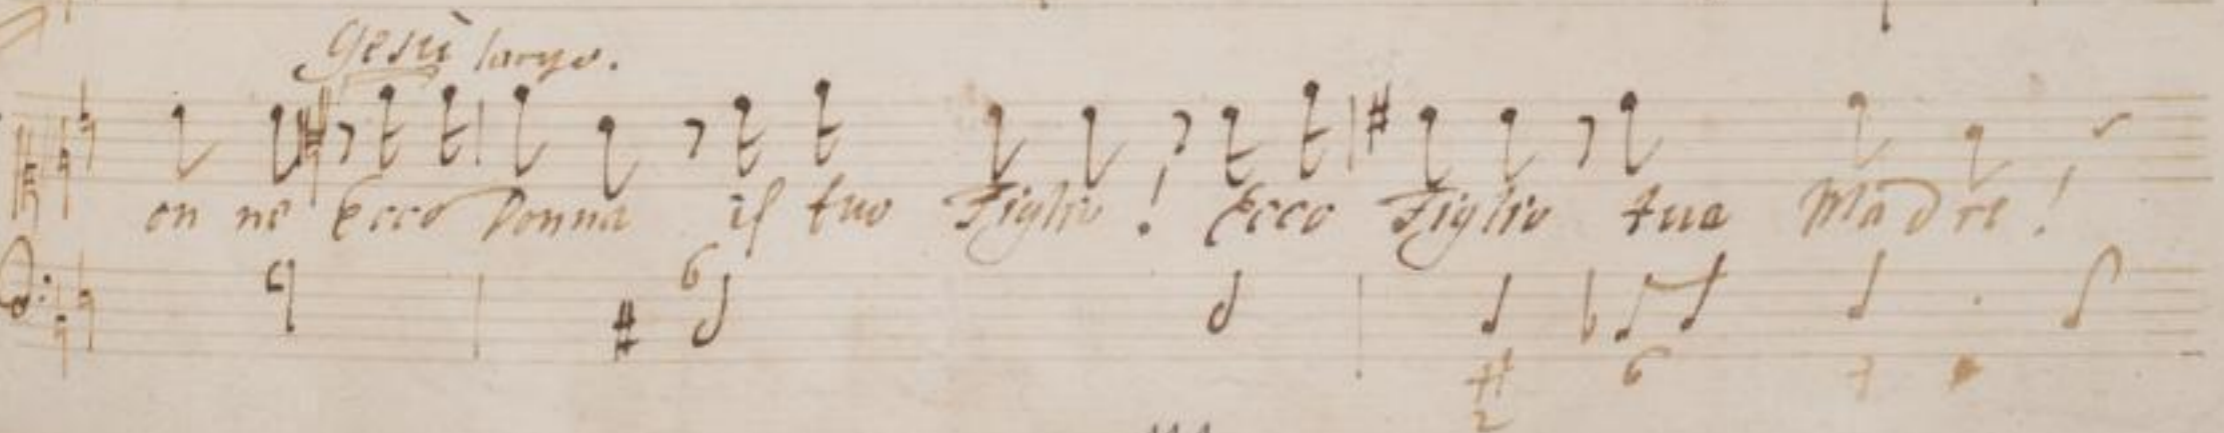 Gesù largo.
on ne Ecco Donna il tuo Figlio! Ecco Figlio tua Madre!
6
6
2